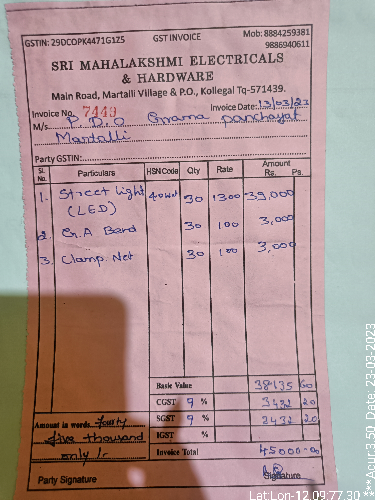 GSTIN: 29DCOPK4471G1Z5 GST INVOICE Mob: 8884259381
9886940611
SRI MAHALAKSHMI ELECTRICALS
& HARDWARE
Main Road, Martalli Village & P.O., Kollegal Tq-571439.
Invoice No. 7449 Invoice Date: 13/03/23
M/s P.D.O Grama panchayat
Martalli
Party GSTIN:
Sl. No. Particulars HSN Code Qty Rate Amount Rs. Ps.
1. Street light 40wt 30 1300 39,000
(LED)
2. 30 100 3,000
3. Clamp Net 30 100 3,000
Basic Value 38135 60
CGST 9 % 3432 20
SGST 9 % 3432 20
IGST %
Amount in words fourty
five thousand
only/-
Invoice Total 45000-00
Party Signature Signature
Lat:Lon-12.09:77.30 ***Acur:3.50 Date: 23-03-2023